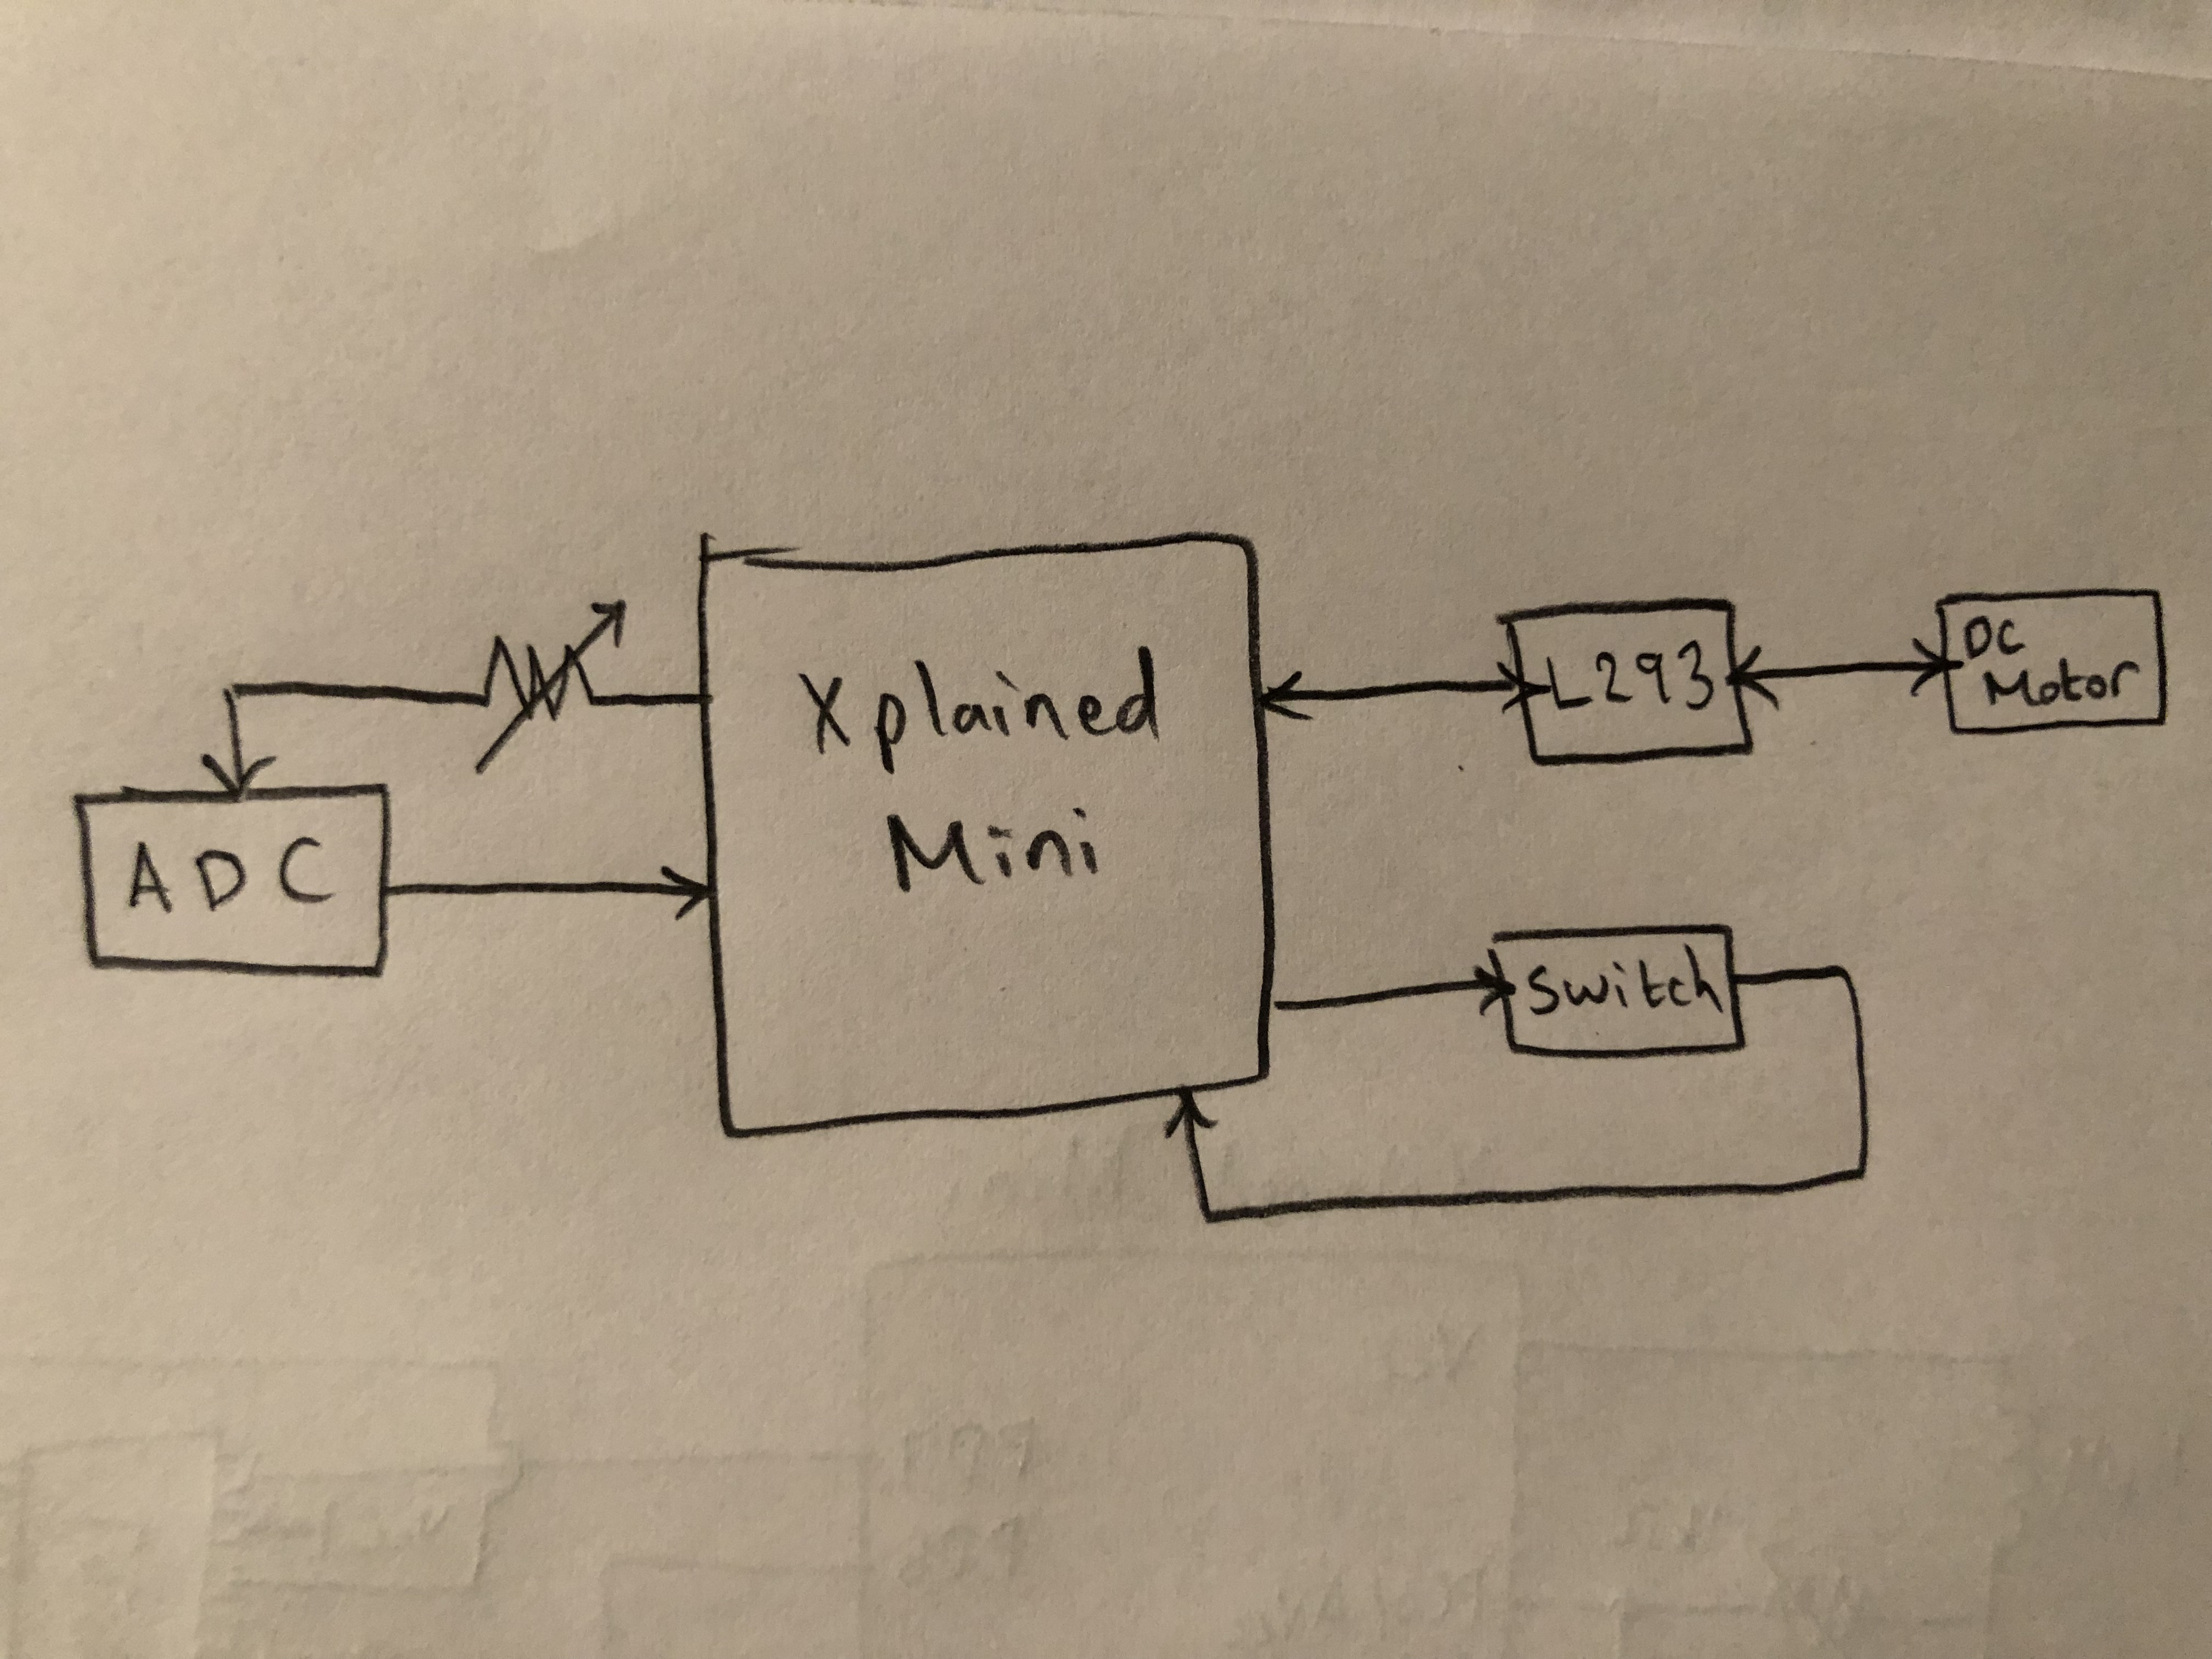 Xplained
Mini
L293
DC
Motor
ADC
Switch